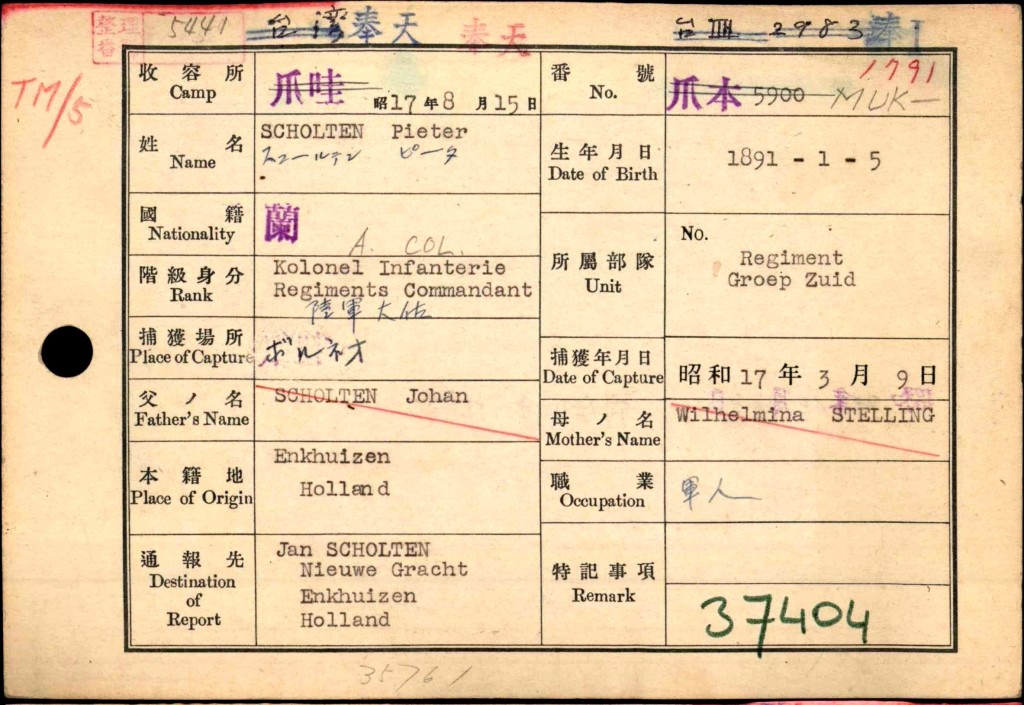 整理番 5441 台湾 奉天 奉天 台Ⅲ 2983
TM/5
收容所 Camp 爪哇 昭17年8月15日
番號 No. 爪本 5900 1791 MUK—
姓名 Name SCHOLTEN Pieter
スコールテン ピータ
生年月日 Date of Birth 1891 - 1 - 5
國籍 Nationality 蘭
A. COL.
階級身分 Rank Kolonel Infanterie
Regiments Commandant
陸軍大佐
所屬部隊 Unit No.
Regiment
Groep Zuid
捕獲場所 Place of Capture ボルネオ
捕獲年月日 Date of Capture 昭和17年3月9日
父ノ名 Father's Name SCHOLTEN Johan
母ノ名 Mother's Name Wilhelmina STELLING
本籍地 Place of Origin Enkhuizen
Holland
職業 Occupation 軍人
通報先 Destination of Report Jan SCHOLTEN
Nieuwe Gracht
Enkhuizen
Holland
特記事項 Remark
37404
35761